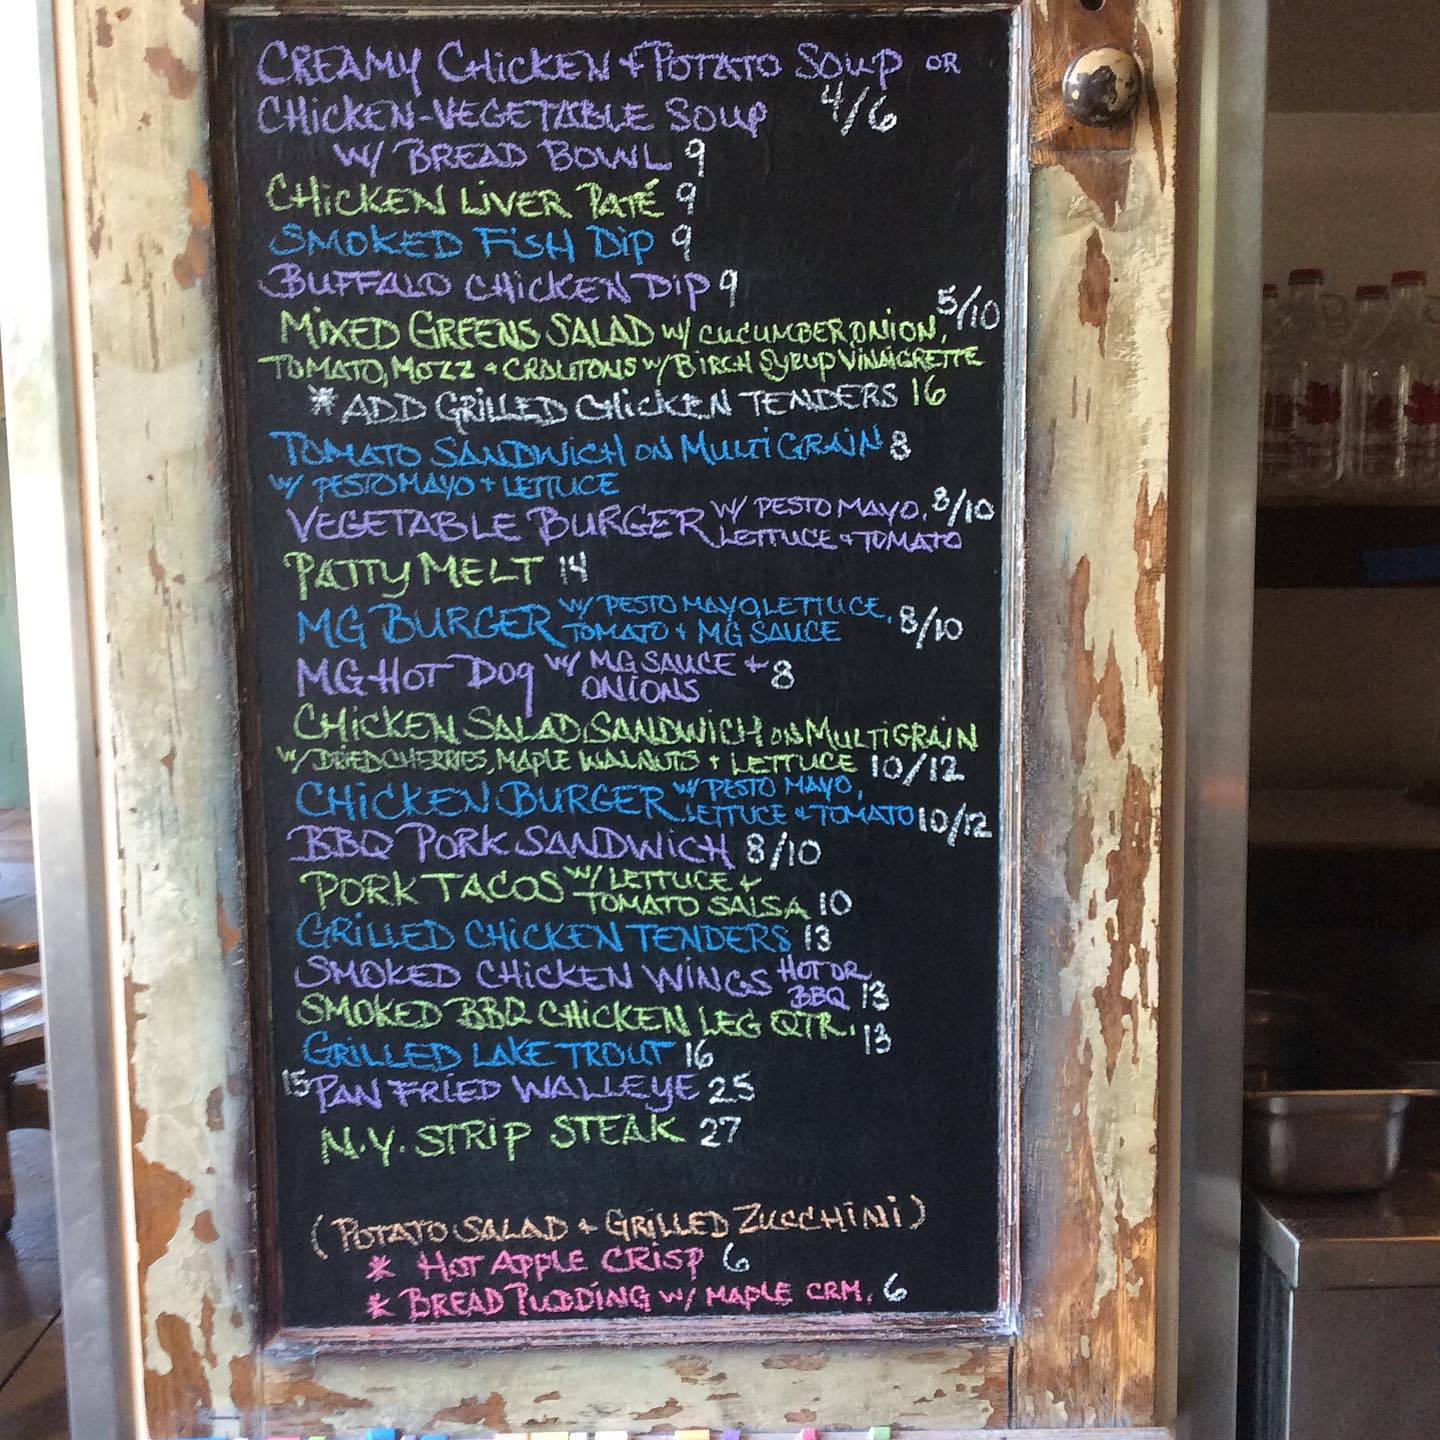 CREAMY CHICKEN + POTATO SOUP OR
CHICKEN-VEGETABLE SOUP 4/6
W/ BREAD BOWL 9
CHICKEN LIVER PATÉ 9
SMOKED FISH DIP 9
BUFFALO CHICKEN DIP 9
MIXED GREENS SALAD W/ CUCUMBER, ONION, 5/10
TOMATO, MOZZ + CROUTONS W/ BIRCH SYRUP VINAIGRETTE
* ADD GRILLED CHICKEN TENDERS 16
TOMATO SANDWICH ON MULTIGRAIN 8
W/ PESTO MAYO + LETTUCE
VEGETABLE BURGER W/ PESTO MAYO, 8/10
LETTUCE + TOMATO
PATTY MELT 14
MG BURGER W/ PESTO MAYO, LETTUCE,
TOMATO + MG SAUCE 8/10
MG HOT DOG W/ MG SAUCE +
ONIONS 8
CHICKEN SALAD SANDWICH ON MULTIGRAIN
W/ DRIED CHERRIES, MAPLE WALNUTS + LETTUCE 10/12
CHICKEN BURGER W/ PESTO MAYO,
LETTUCE + TOMATO 10/12
BBQ PORK SANDWICH 8/10
PORK TACOS W/ LETTUCE +
TOMATO SALSA 10
GRILLED CHICKEN TENDERS 13
SMOKED CHICKEN WINGS HOT OR
BBQ 13
SMOKED BBQ CHICKEN LEG QTR. 13
GRILLED LAKE TROUT 16
15 PAN FRIED WALLEYE 25
N.Y. STRIP STEAK 27
(POTATO SALAD + GRILLED ZUCCHINI)
* HOT APPLE CRISP 6
* BREAD PUDDING W/ MAPLE CRM. 6